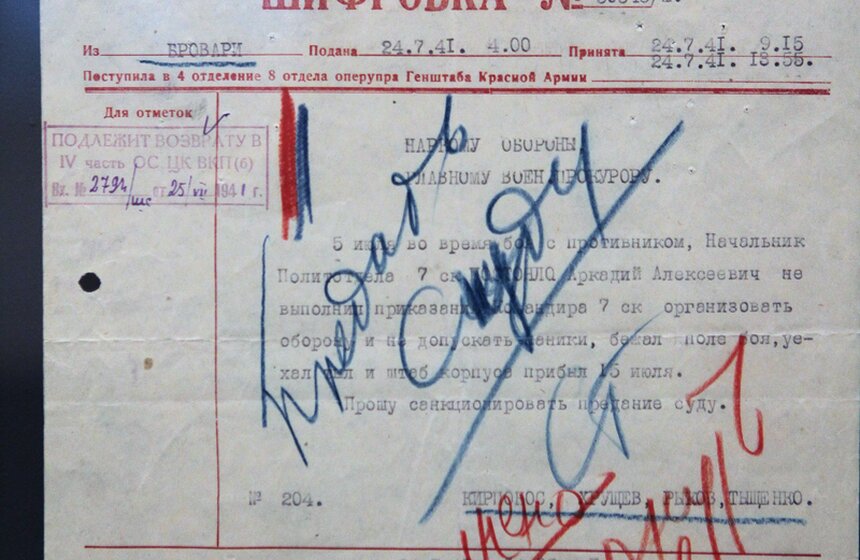 ШИФРОВКА №
Из БРОВАРИ Подана 24.7.41. 4.00 Принята 24.7.41. 9.15
24.7.41. 18.55.
Поступила в 4 отделение 8 отдела оперупра Генштаба Красной Армии
Для отметок
ПОДЛЕЖИТ ВОЗВРАТУ В
IV часть ОС. ЦК ВКП(б)
Вх. № 2794/шс от 25/VII 1941 г.
НАРКОМУ ОБОРОНЫ,
ГЛАВНОМУ ВОЕН.ПРОКУРОРУ.
5 июля во время боя с противником, Начальник
Политотдела 7 ск Аркадий Алексеевич не
выполнил приказания командира 7 ск организовать
оборону и не допускать паники, бежал с поле боя, уе-
хал в тыл и штаб корпуса прибыл 15 июля.
Прошу санкционировать предание суду.
Предать
Суду
Ст
№ 204.
КИРПОНОС, ХРУЩЕВ, РЫКОВ, ТЫЩЕНКО.